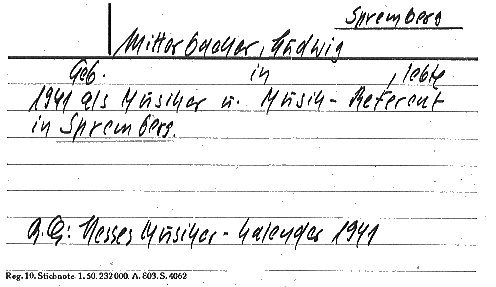 Spremberg
Mitterbacher, Ludwig
Geb. in , lebte
1941 als Musiker u. Musik-Referent
in Spremberg.
Q.: Hesses Musiker-Kalender 1941
Reg. 10. Stichnote 1. 50. 232000. A. 803. S. 4062